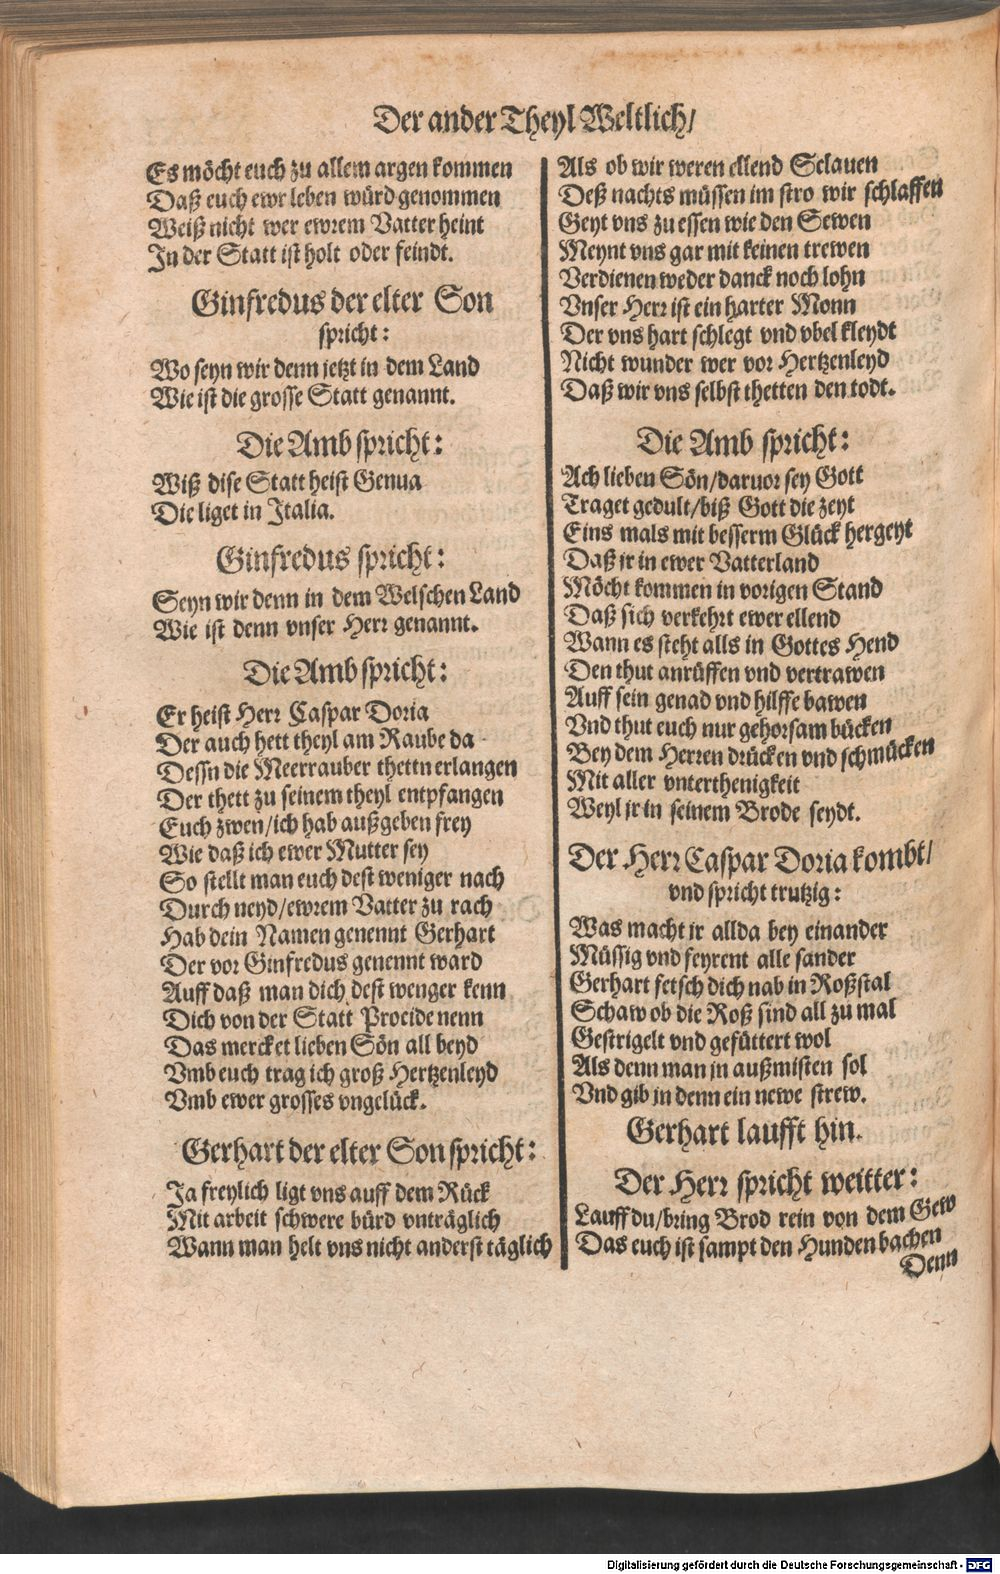 Der ander Theyl Weltlich/
Es möcht euch zu allem argen kommen
Daß euch ewr leben würd genommen
Weiß nicht wer ewrem Vatter heint
In der Statt ist holt oder feindt.
Ginfredus der elter Son
spricht:
Wo seyn wir denn jetzt in dem Land
Wie ist die grosse Statt genannt.
Die Amb spricht:
Wiß dise Statt heist Genua
Die liget in Italia.
Ginfredus spricht:
Seyn wir denn in dem Welschen Land
Wie ist denn vnser Herr genannt.
Die Amb spricht:
Er heist Herr Caspar Doria
Der auch hett theyl am Raube da
Dessn die Meerrauber thettn erlangen
Der thett zu seinem theyl entpfangen
Euch zwen/ich hab außgeben frey
Wie daß ich ewer Mutter sey
So stellt man euch dest weniger nach
Durch neyd/ewrem Vatter zu rach
Hab dein Namen genennt Gerhart
Der vor Ginfredus genennt ward
Auff daß man dich dest wenger kenn
Dich von der Statt Procide nenn
Das mercket lieben Sön all beyd
Vmb euch trag ich groß Hertzenleyd
Vmb ewer grosses vngelück.
Gerhart der elter Son spricht:
Ja freylich ligt vns auff dem Rück
Mit arbeit schwere bürd vnträglich
Wann man helt vns nicht anderst täglich
Als ob wir weren ellend Sclauen
Deß nachts müssen im stro wir schlaffen
Geyt vns zu essen wie den Sewen
Meynt vns gar mit keinen trewen
Verdienen weder danck noch lohn
Vnser Herr ist ein harter Monn
Der vns hart schlegt vnd vbel kleydt
Nicht wunder wer vor Hertzenleyd
Daß wir vns selbst thetten den todt.
Die Amb spricht:
Ach lieben Sön/daruor sey Gott
Traget gedult/biß Gott die zeyt
Eins mals mit besserm Glück hergeyt
Daß jr in ewer Vatterland
Möcht kommen in vorigen Stand
Daß sich verkehrt ewer ellend
Wann es steht alls in Gottes Hend
Den thut anrüffen vnd vertrawen
Auff sein genad vnd hilffe bawen
Vnd thut euch nur gehorsam bücken
Bey dem Herren drücken vnd schmücken
Mit aller vnterthenigkeit
Weyl jr in seinem Brode seydt.
Der Herr Caspar Doria kombt/
vnd spricht trutzig:
Was macht jr allda bey einander
Müssig vnd feyrent alle sander
Gerhart fetsch dich nab in Roßstal
Schaw ob die Roß sind all zu mal
Gestrigelt vnd gefüttert wol
Als denn man jn außmisten sol
Vnd gib jn denn ein newe strew.
Gerhart laufft hin.
Der Herr spricht weitter:
Lauff du/bring Brod rein von dem Gew
Das euch ist sampt den Hunden bachen
Denn
Digitalisierung gefördert durch die Deutsche Forschungsgemeinschaft - DFG